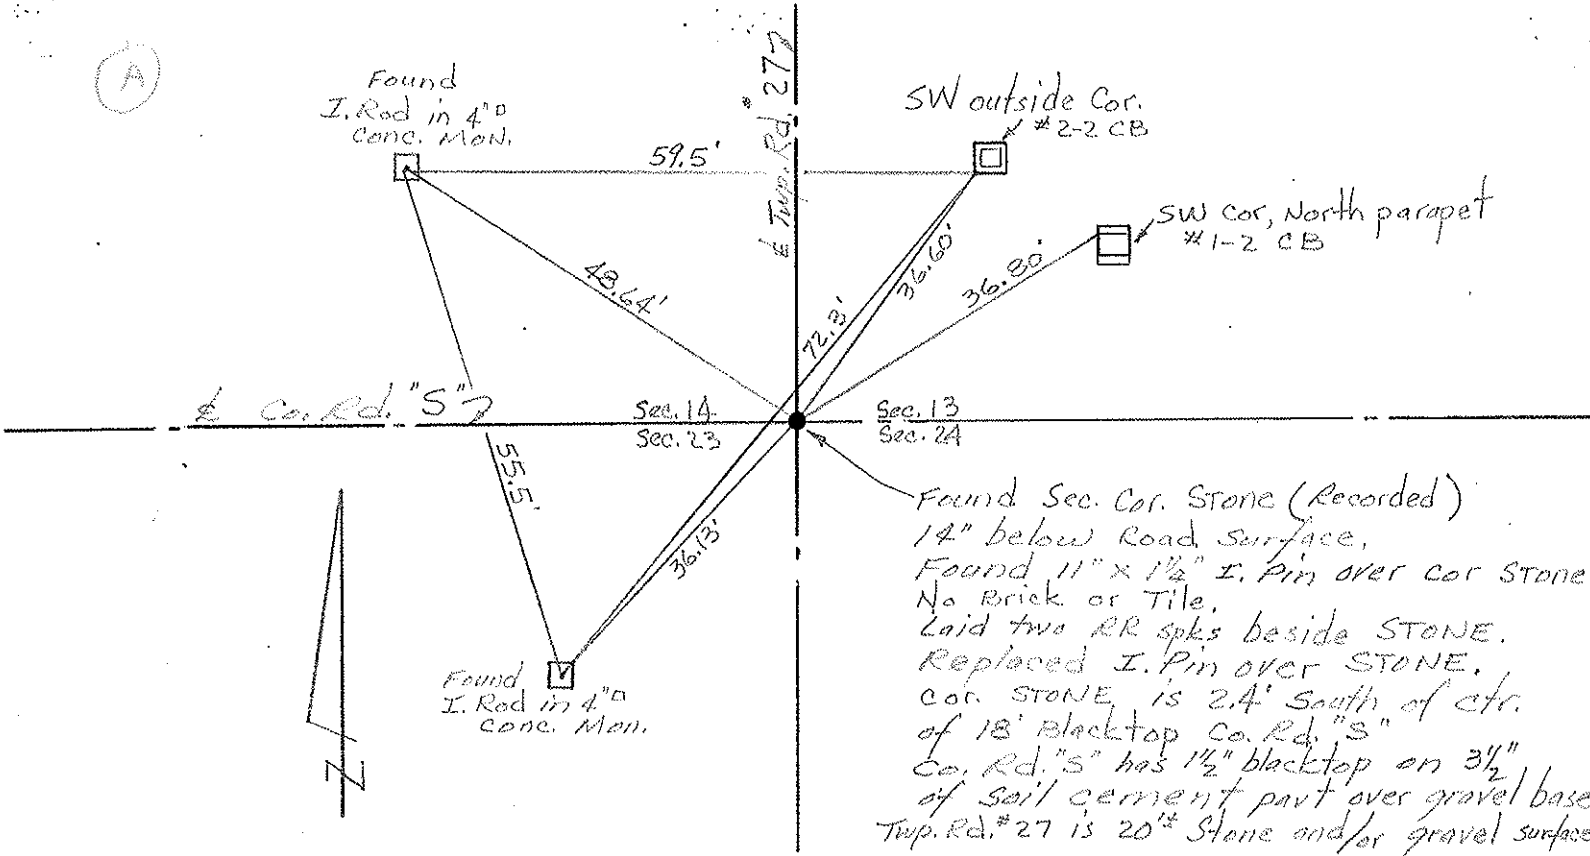 A
Found
I. Rod in 4"□
Conc. Mon.
59.5'
℄ Twp. Rd. #27
SW outside Cor.
#2-2 CB
SW Cor, North parapet
#1-2 CB
48.64'
72.3'
36.60'
36.80'
℄ Co. Rd. "S"
Sec. 14
Sec. 23
Sec. 13
Sec. 24
55.5'
36.13'
Found
I. Rod in 4"□
Conc. Mon.
N
Found Sec. Cor. Stone (Recorded)
14" below Road Surface,
Found 11" x 1½" I. Pin over Cor STONE
No Brick or Tile.
Laid two RR spks beside STONE.
Replaced I. Pin over STONE.
Cor. STONE is 2.4' South of ctr.
of 18' Blacktop Co. Rd. "S"
Co. Rd. "S" has 1½" blacktop on 3½"
of Soil cement pavt over gravel base
Twp. Rd. #27 is 20'± Stone and/or gravel surface